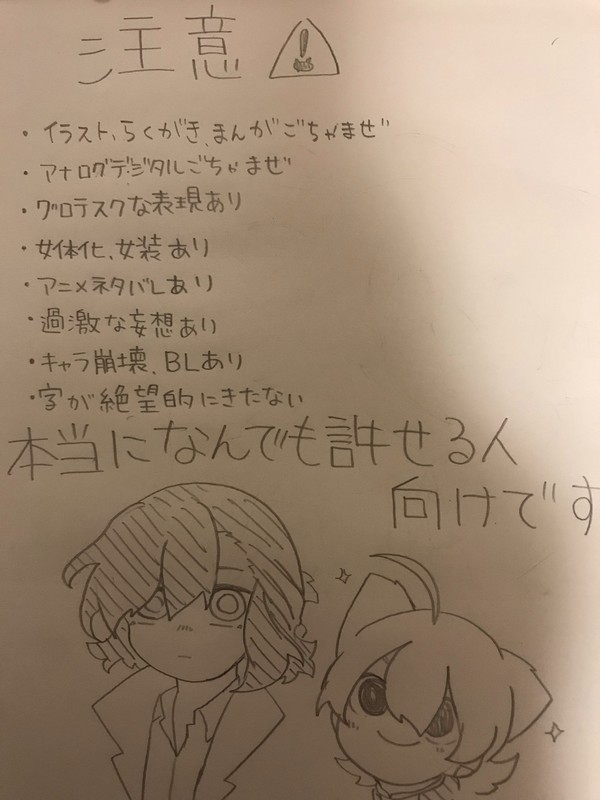 注意
・イラスト、らくがき、まんがごちゃまぜ
・アナログデジタルごちゃまぜ
・グロテスクな表現あり
・女体化、女装あり
・アニメネタバレあり
・過激な妄想あり
・キャラ崩壊、BLあり
・字が絶望的にきたない
本当になんでも許せる人
向けです